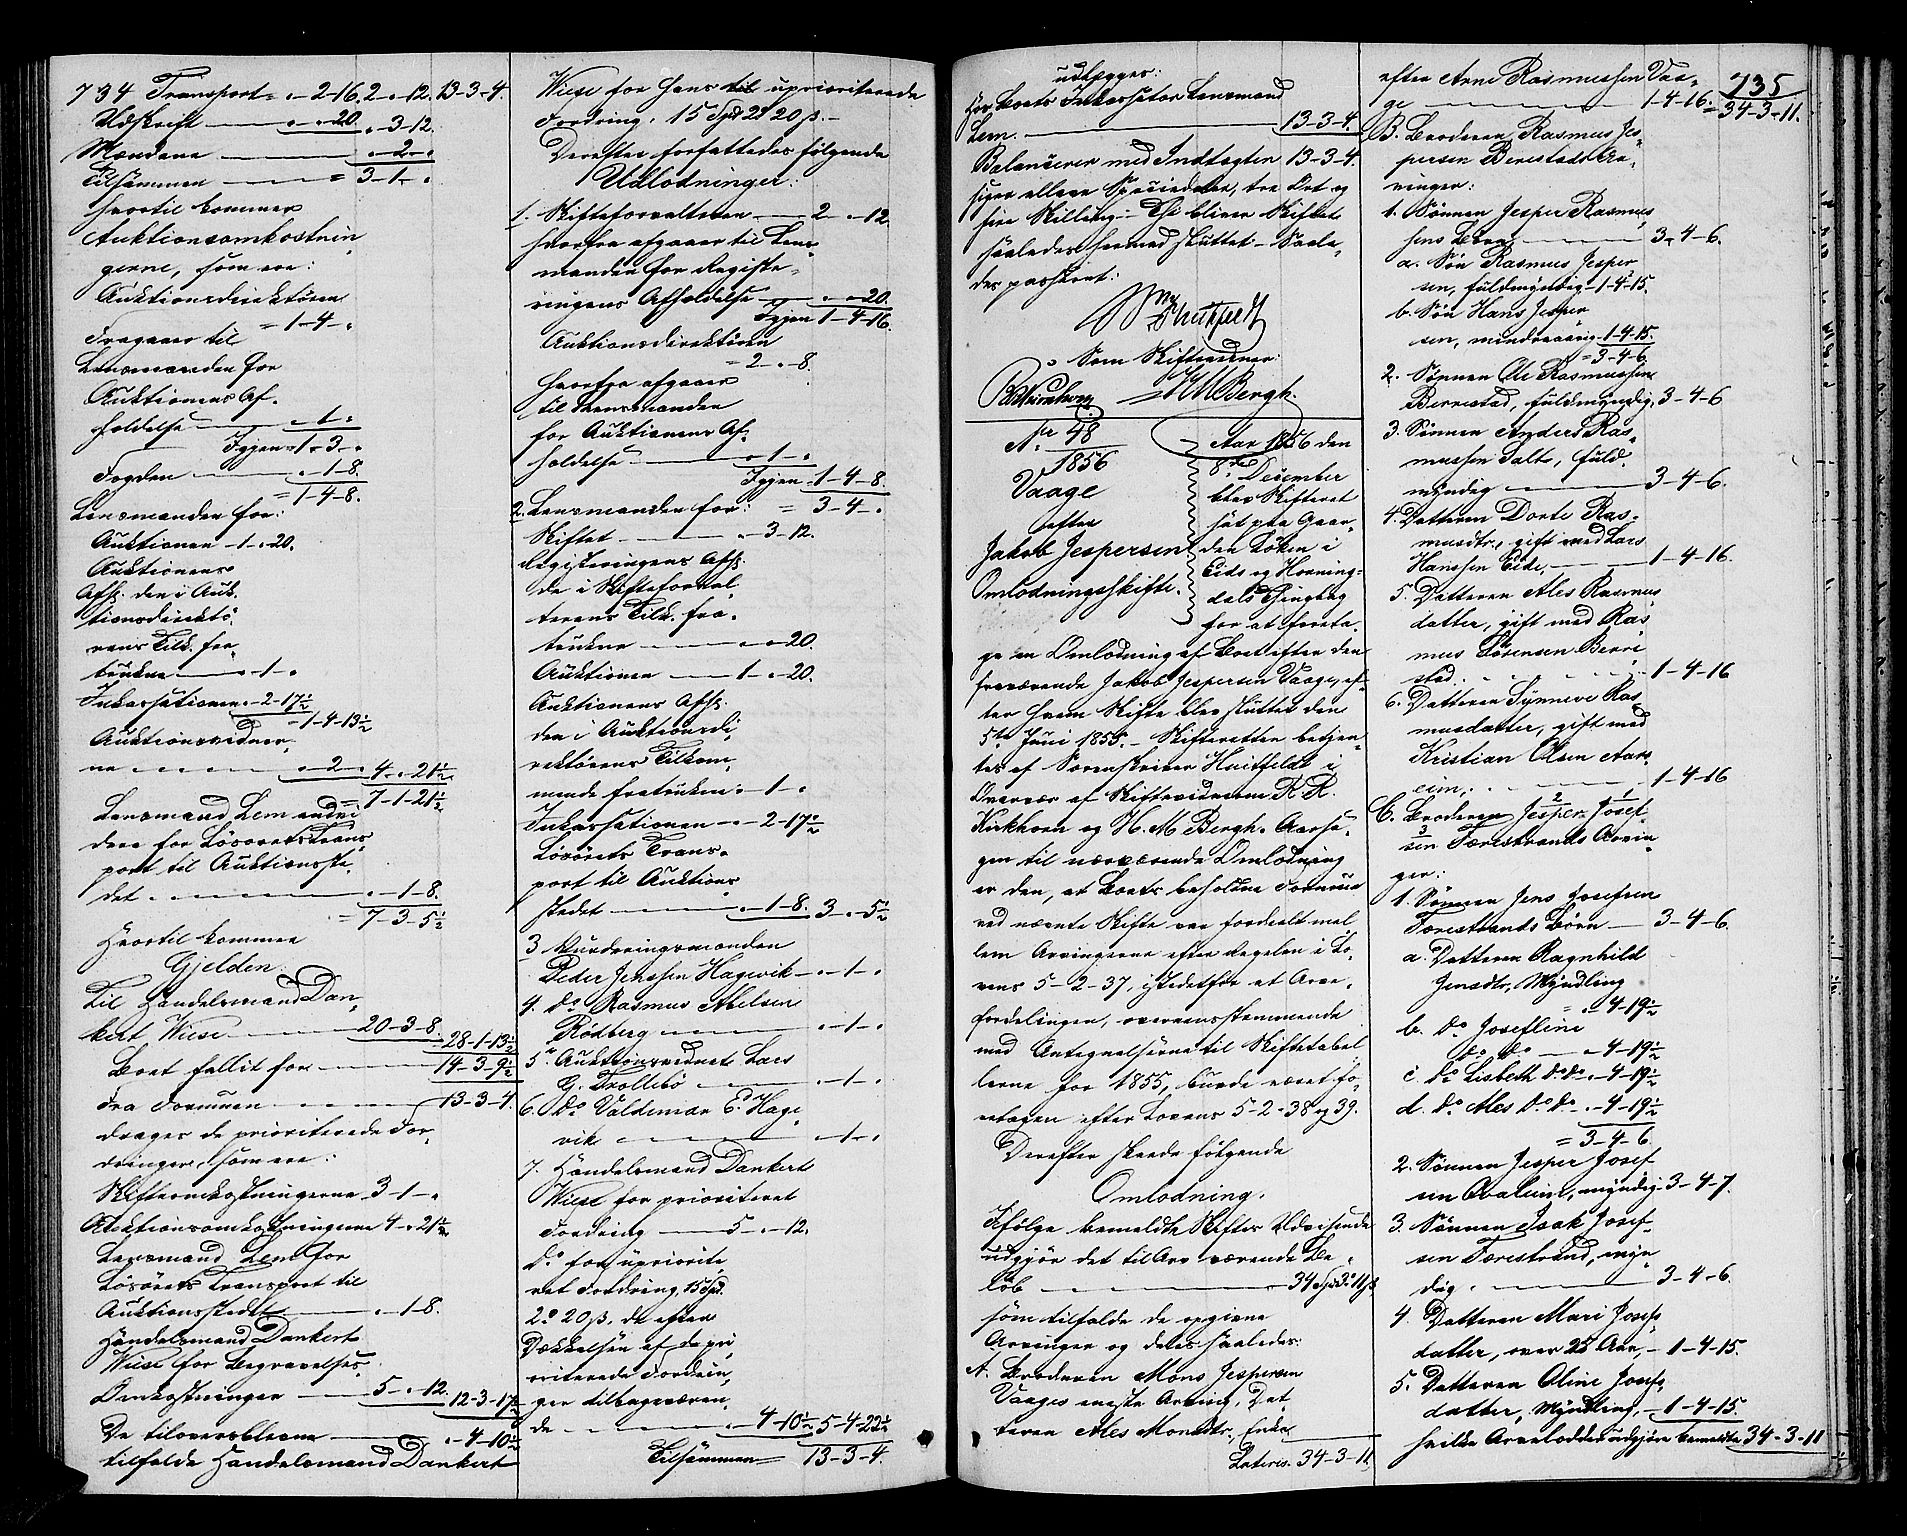 734 Transport = „-2-16. 2-„-12. 13-3-4.
Udskrift „-„-20. „-3-12.
Mændene „-2-„
Tilsammen = 3-1-„
hvortil kommer
Auktionsomkostnin
gerne, som ere:
Auktionsdirektøren
= 1-4-„
Fragaaer til
Lensmanden for
Auktionens Af-
holdelse „-1-„
Igjen = 1-3-„
Fogden „-1-8.
= 1-4-8.
Lensmanden for:
Auktionen -1-„-20.
Auktionens
Afh. den i Auk.
tionsdirektø.
rens Tilk. fra-
trukne „-1-„
Inkassationen „-2-17½
= 1-4-13½
Auktionsvidner-
ne „-2-„ 4-„-21½
= 7-1-21½
Lensmand Lem endvi
dere for Løsørets Trans
port til Auktionsste.
det „-1-8.
= 7-3-5½
Hvortil kommer
Gjelden:
Til Handelsmand Dan-
kert Wiese 20-3-8.
28-1-13½
Boet fallit for 14-3-9½
Fra Formuen 13-3-4.
drages de prioriterede For-
dringer, som ere:
Skifteomkostningerne 3-1-„
Auktionsomkostningerne 4-„-21½
Lensmand Lem for
Løsørets Transport til
Auktionsstedet „-1-8.
Handelsmand Dankert
Wiese for Begravelses-
Omkostninger 5-„-12. 12-3-17½
De tiloversblevne „-4-10½
tilfalde Handelsmand Dankert
Wiese for hans til upriori­terede
Fordring, 15 Spd 2 20 ß.-
Derefter forfattedes følgende
Udlodninger:
1. Skifteforvalteren 2-„-12.
hvorfra afgaaer til Lens-
manden for Registe-
ringens Afholdelse „-„-20.
Igjen 1-4-16.
Auktionsdirektøren
= 2-„-8.
hvorfra afgaaer
til Lensmanden
for Auktionens Af-
holdelse „-1-„
Igjen 1-4-8.
2. Lensmanden for: = 3-4-„
Skiftet „-3-12.
Registeringens Afh.
de i Skifteforval.
terens Tilk. fra-
trukne „-„-20.
Auktionen 1-„-20.
Auktionens Afh.
den i Auktionsdi-
rektørens Tilkom-
mende fratrukne „-1-„
Inkassationen „-2-17½
Løsørets Trans-
port til Auktions
stedet „-1-8. 3-„-5½
3 Vurderingsmanden
Peder Jenssen Hagevik „-1-„
4. do Rasmus Abelsen
Rødberg „-1-„
5. Auktionsvidnet Lars
G. Trollebø „-1-„
6. do Valdemar E. Hage
vik „-1-„
7. Handelsmand Dankert
Wiese for prioriteret
Fordring 5-„-12.
do for upriorite
ret Fordring, 15 Spd.
2 20 ß, de efter
Dækkelsen af de pri
oriterede Fordrin-
ger tilbageværen-
de „-4-10½ 5-4-22½
Tilsammen 13-3-4.
udlægges:
Lem. 13-3-4.
Balancerer med Indtægten 13-3-4.
siger elleve Speciedaler, tre Ort og
fire Skilling. Thi bliver Skiftet
saaledes hermed sluttet. Saale
des passeret:
Huitfeldt
Som Skiftevidner:
R R Kirkhorn H M Bergh.
Nr 48
1856
Vaage
efter
Jakob Jespersen
Omlodningsskifte.
Aar 1856 den
8de December
blev Skifteret
sat paa Gaar-
den Løken i
Eids og Horning-
dals Thinglag
for at foreta-
ge en Omlodning af Boet efter den
fraværende Jakob Jespersen Vaage, ef-
ter hvem Skifte blev sluttet den
5te Juni 1855. Skifteretten betjen-
tes af Sorenskriver Huitfeldt i
Overvær af Skiftevidnerne R R.
Kirkhorn og H. M Bergh. Aarsa-
gen til nærværende Omlodning
er den, at Boets beholdne Formue
ved nævnte Skifte var fordeelt mel
lem Arvingerne efter Regelen i Lo-
vens 5-2-37, istedetfor at Arve-
fordelingen, overensstemmende
med Antegnelserne til Skiftetabel
lerne for 1855, burde været fo-
retagen efter Lovens 5-2-38 og 39.
Derefter skeede følgende
Omlodning.
Ifølge bemeldte Skiftes Udvisende
udgjør det til Arv værende Be-
løb 34 Spd 3 11 ß
som tilfalde de opgivne
Arvinger og deles saaledes:
A. Broderen Mons Jespersen
Vaages eneste Arving, Dat-
teren Ales Monsdtr, Enke
Lateris. 34-3-11
735
efter Arne Rasmussen Vaa-
ge 1-4-16. = 34-3-11.
B. Broderen Rasmus Jes-
persen Berrestads Ar-
vinger:
1. Sønnen Jesper Rasmus
sens Børn 3-4-6.
a. Søn Rasmus Jesper
sen, fuldmyndig -1-4-15.
b. Søn Hans Jesper
sen, mindreaarig -1-4-15.
= 3-4-6.
2. Sønnen Ole Rasmussen
Berrestad, fuldmyndig, 3-4-6
3. Sønnen Anders Ras-
mussen Salt, fuld.
myndig 3-4-6.
4. Datteren Dorte Ras-
musdtr, gift med Lars
Hanssen Eide, 1-4-16.
5. Datteren Ales Rasmus
datter, gift med Ras
mus Sørensen Berre
stad. 1-4-16
6. Datteren Synneve Ras
musdatter, gift med
Kristian Olsen Aars
eim, 1-4-16
C. Broderen Jesper Josef
sen Færestrands Arvin
ger:
1. Sønnen Jens Josefsen
Færestrands Børn 3-4-6.
a. Datteren Ragnhild
Jensdtr, Myndling
= „-4-19½
b. do Josefline
do do „-4-19½
c. do Lisbeth do do „-4-19½
d. do Ales do do „-4-19½
= 3-4-6.
2. Sønnen Jesper Josef
sen myndig 3-4-7.
3. Sønnen Isak Josef-
sen Færestrand, myn
dig. 3-4-6.
4. Datteren Mari Josefs
datter, over 25 Aar, 1-4-15.
5. Datteren Oline Josefs
datter, Myndling, 1-4-15.
hvilke Arvelodder udgjøre bemeldte 34-3-11